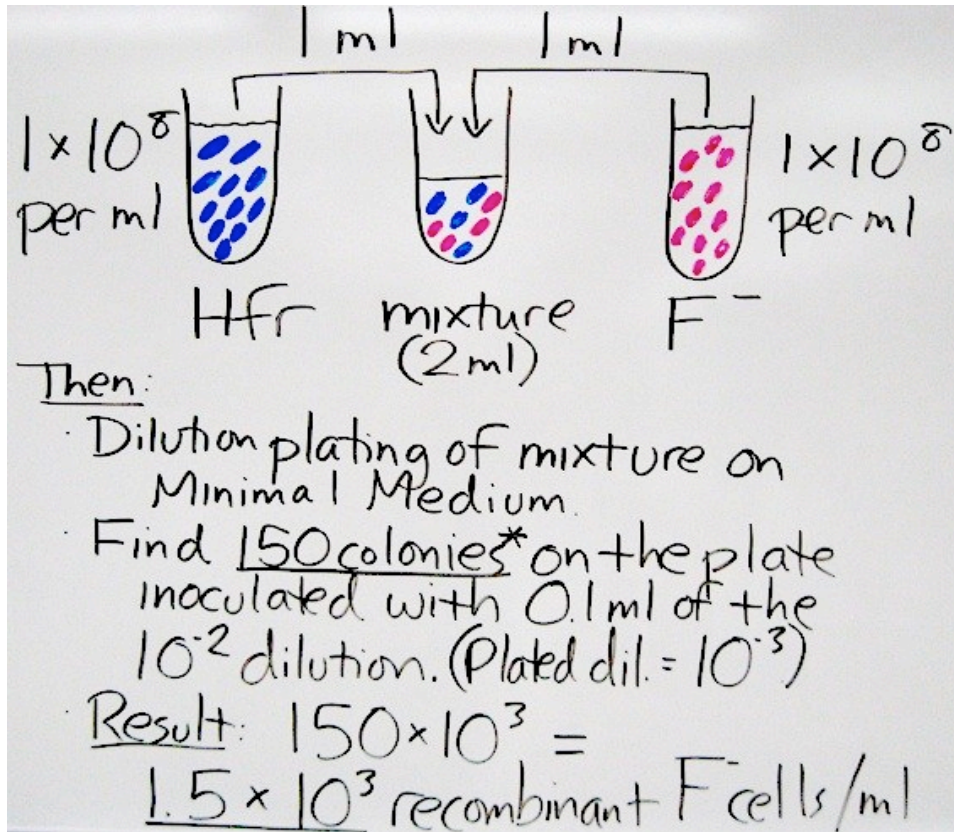 1 ml 1 ml
1 × 10⁸ per ml
1 × 10⁸ per ml
Hfr
mixture
(2 ml)
F⁻
Then:
· Dilution plating of mixture on
Minimal Medium.
· Find 150 colonies* on the plate
inoculated with 0.1 ml of the
10⁻² dilution. (Plated dil. = 10⁻³)
· Result: 150 × 10³ =
1.5 × 10³ recombinant F⁻ cells/ml